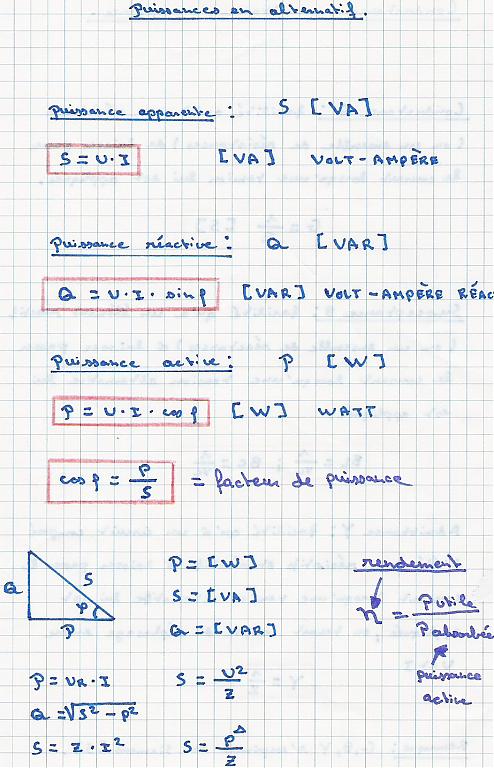 Puissances en alternatif.
puissance apparente : S [VA]
S = U·I [VA] VOLT-AMPÈRE
Puissance réactive : Q [VAR]
Q = U·I·sin φ [VAR] VOLT-AMPÈRE RÉAC
Puissance active : P [W]
P = U·I·cos φ [W] WATT
cos φ = P/S = facteur de puissance
Q S φ P
P = [W]
S = [VA]
Q = [VAR]
rendement
η = Putile / Pabsorbée
puissance
active
P = UR·I S = U²/Z
Q = √S² - P²
S = Z·I² S = P/Z